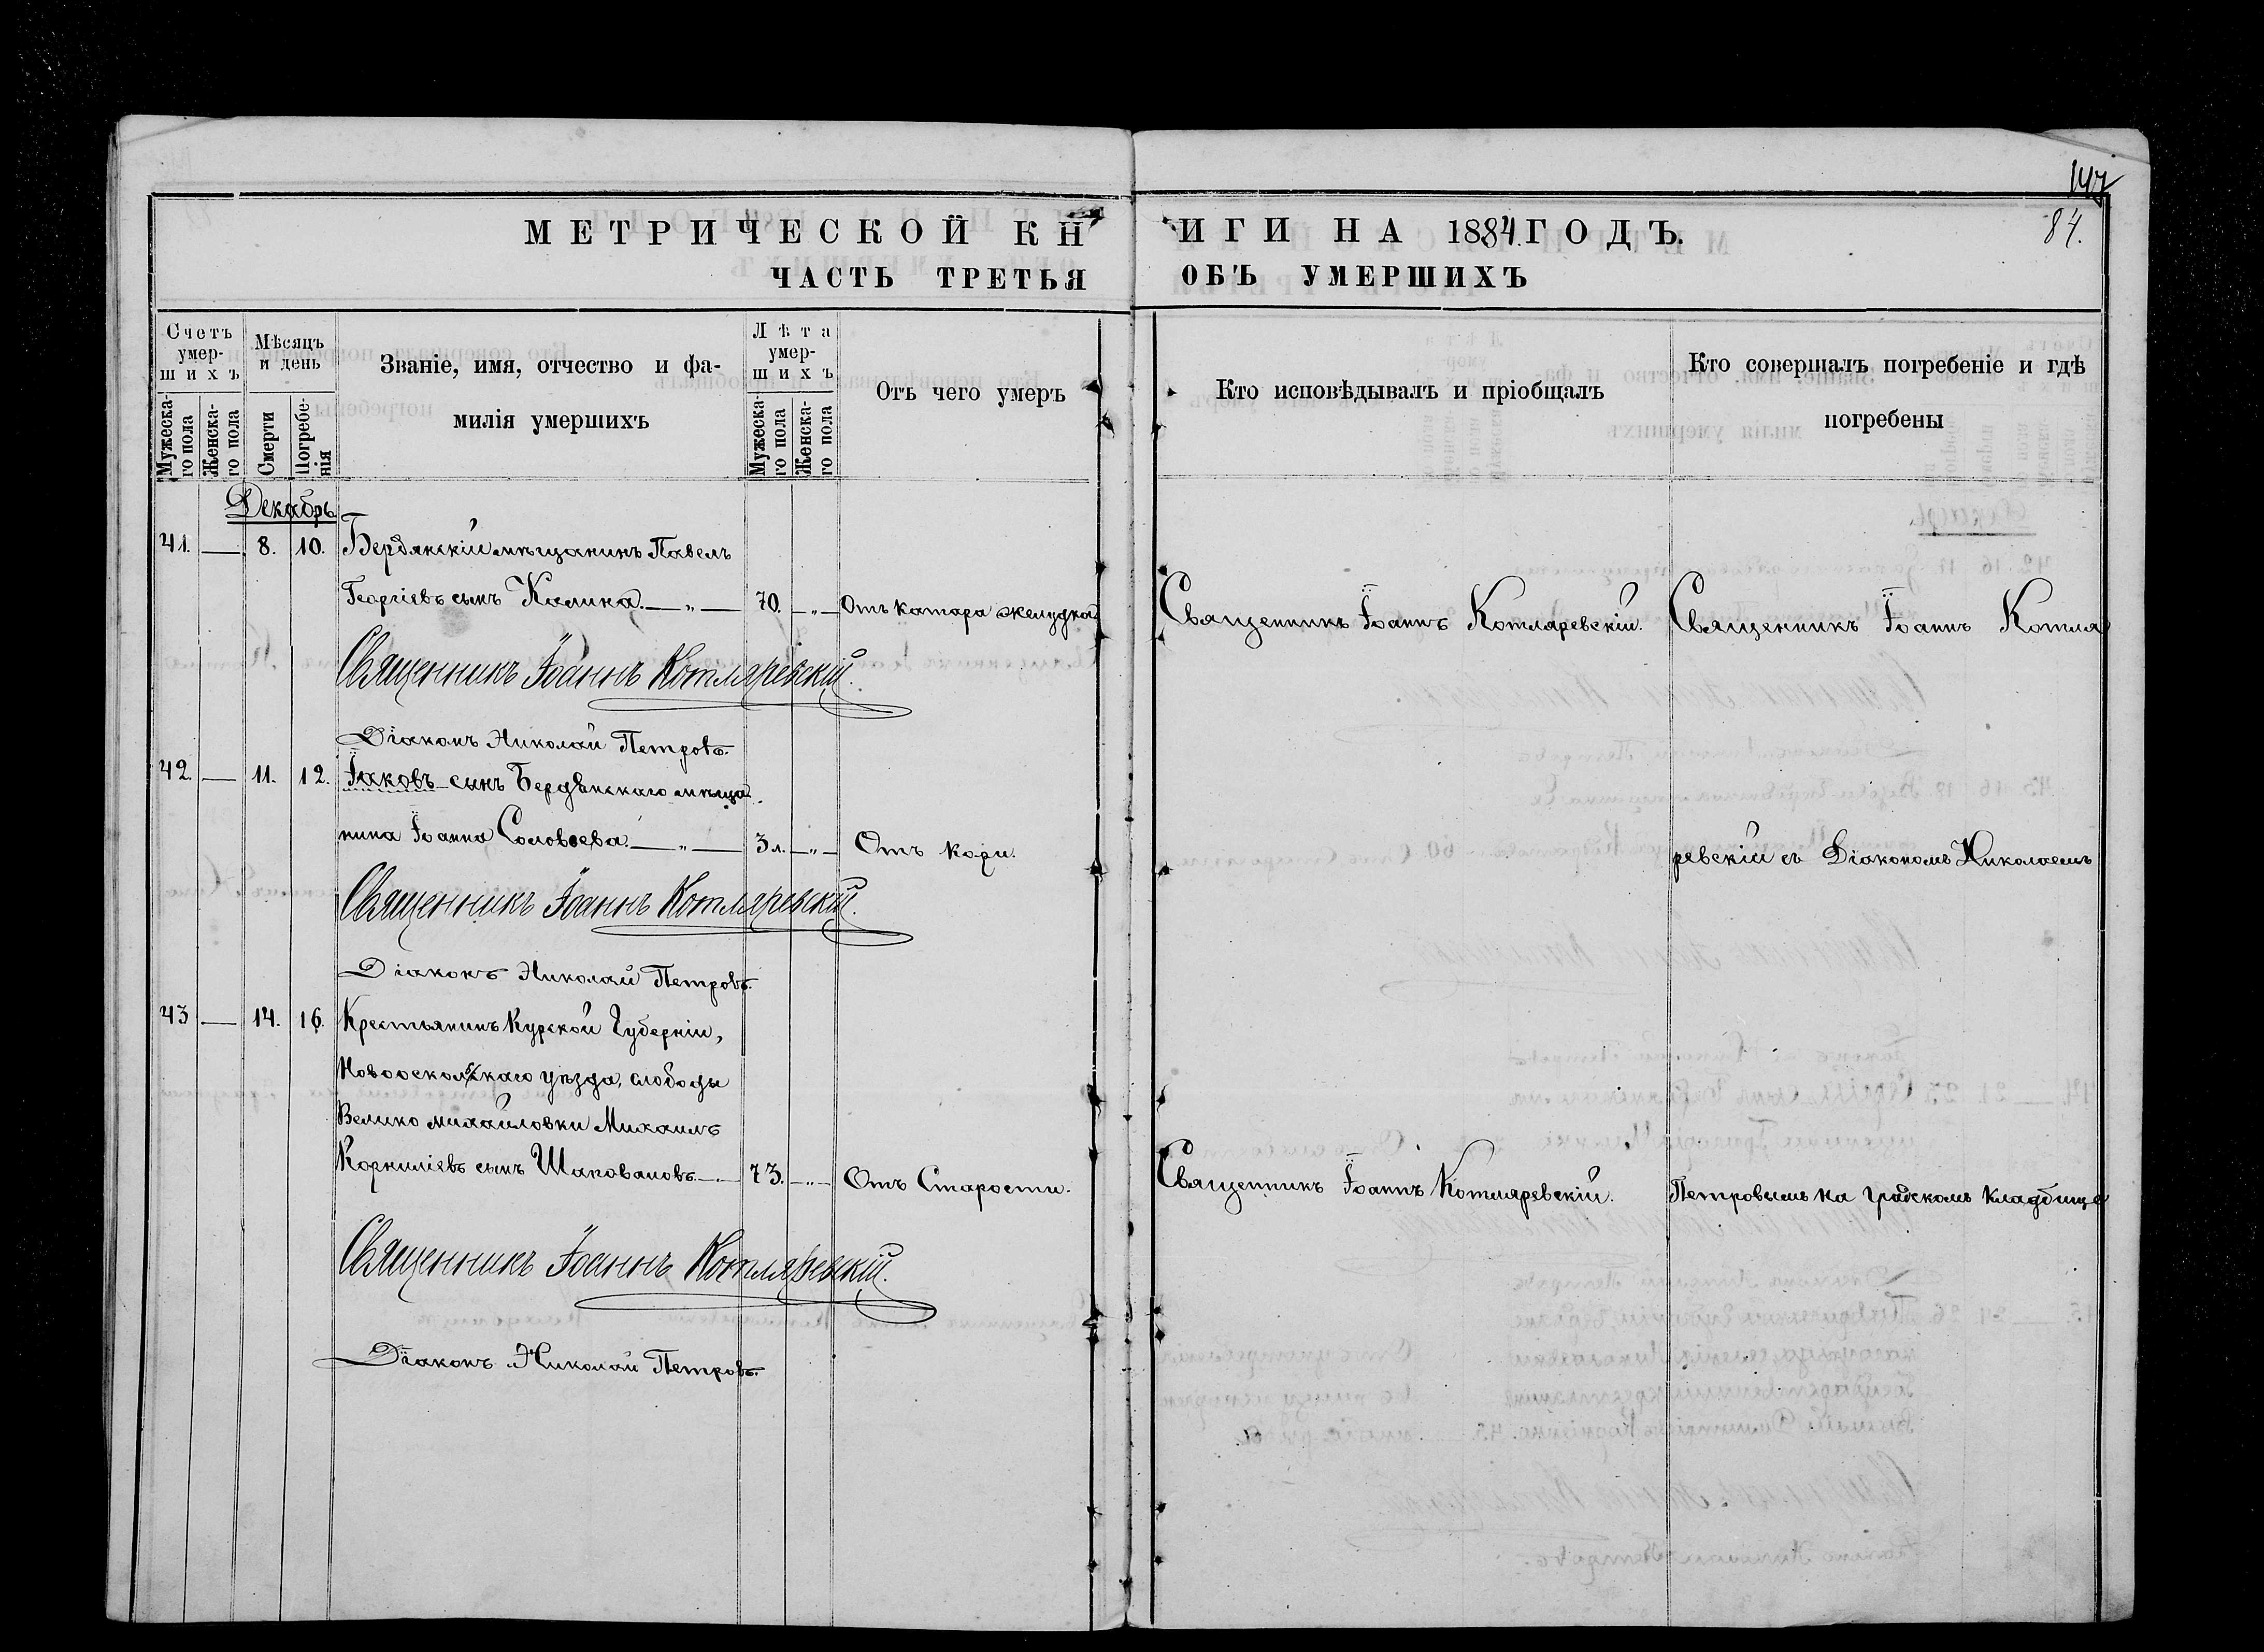 147
84.
МЕТРИЧЕСКОЙ КНИГИ НА 1884 ГОДЪ.
ЧАСТЬ ТРЕТЬЯ ОБЪ УМЕРШИХЪ
Счетъ умер-
шихъ
Мужеска-
го пола
Женска-
го пола
Мѣсяцъ
и день
Смерти
Погребе-
нія
Званіе, имя, отчество и фа-
милія умершихъ
Лѣта
умер-
шихъ
Мужеска-
го пола
Женска-
го пола
Отъ чего умеръ
Кто исповѣдывалъ и пріобщалъ
Кто совершалъ погребеніе и гдѣ
погребены
Декабрь
41. — 8. 10. Бердянскій мѣщанинъ Павелъ
Георгіевъ сынъ Калика. — „ — 70. — „ — Отъ катара желудка. Священникъ Іоаннъ Котляревскій. Священникъ Іоаннъ Котля
Священникъ Іоаннъ Котляревскій.
Діаконъ Николай Петровъ.
42. — 11. 12. Іаковъ – сынъ Бердянскаго мѣща
нина Іоанна Соловьева. — „ — 3 л. — „ — Отъ кори. ревскій съ Діакономъ Николаемъ
Священникъ Іоаннъ Котляревскій.
Діаконъ Николай Петровъ.
43 — 14. 16. Крестьянинъ Курской Губерніи,
Новооскольскаго уѣзда, слободы
Велико михайловки Михаилъ
Корниліевъ сынъ Шаповаловъ. — „ — 73. — „ — Отъ Старости. Священникъ Іоаннъ Котляревскій. Петровымъ на градскомъ кладбище
Священникъ Іоаннъ Котляревскій.
Діаконъ Николай Петровъ.